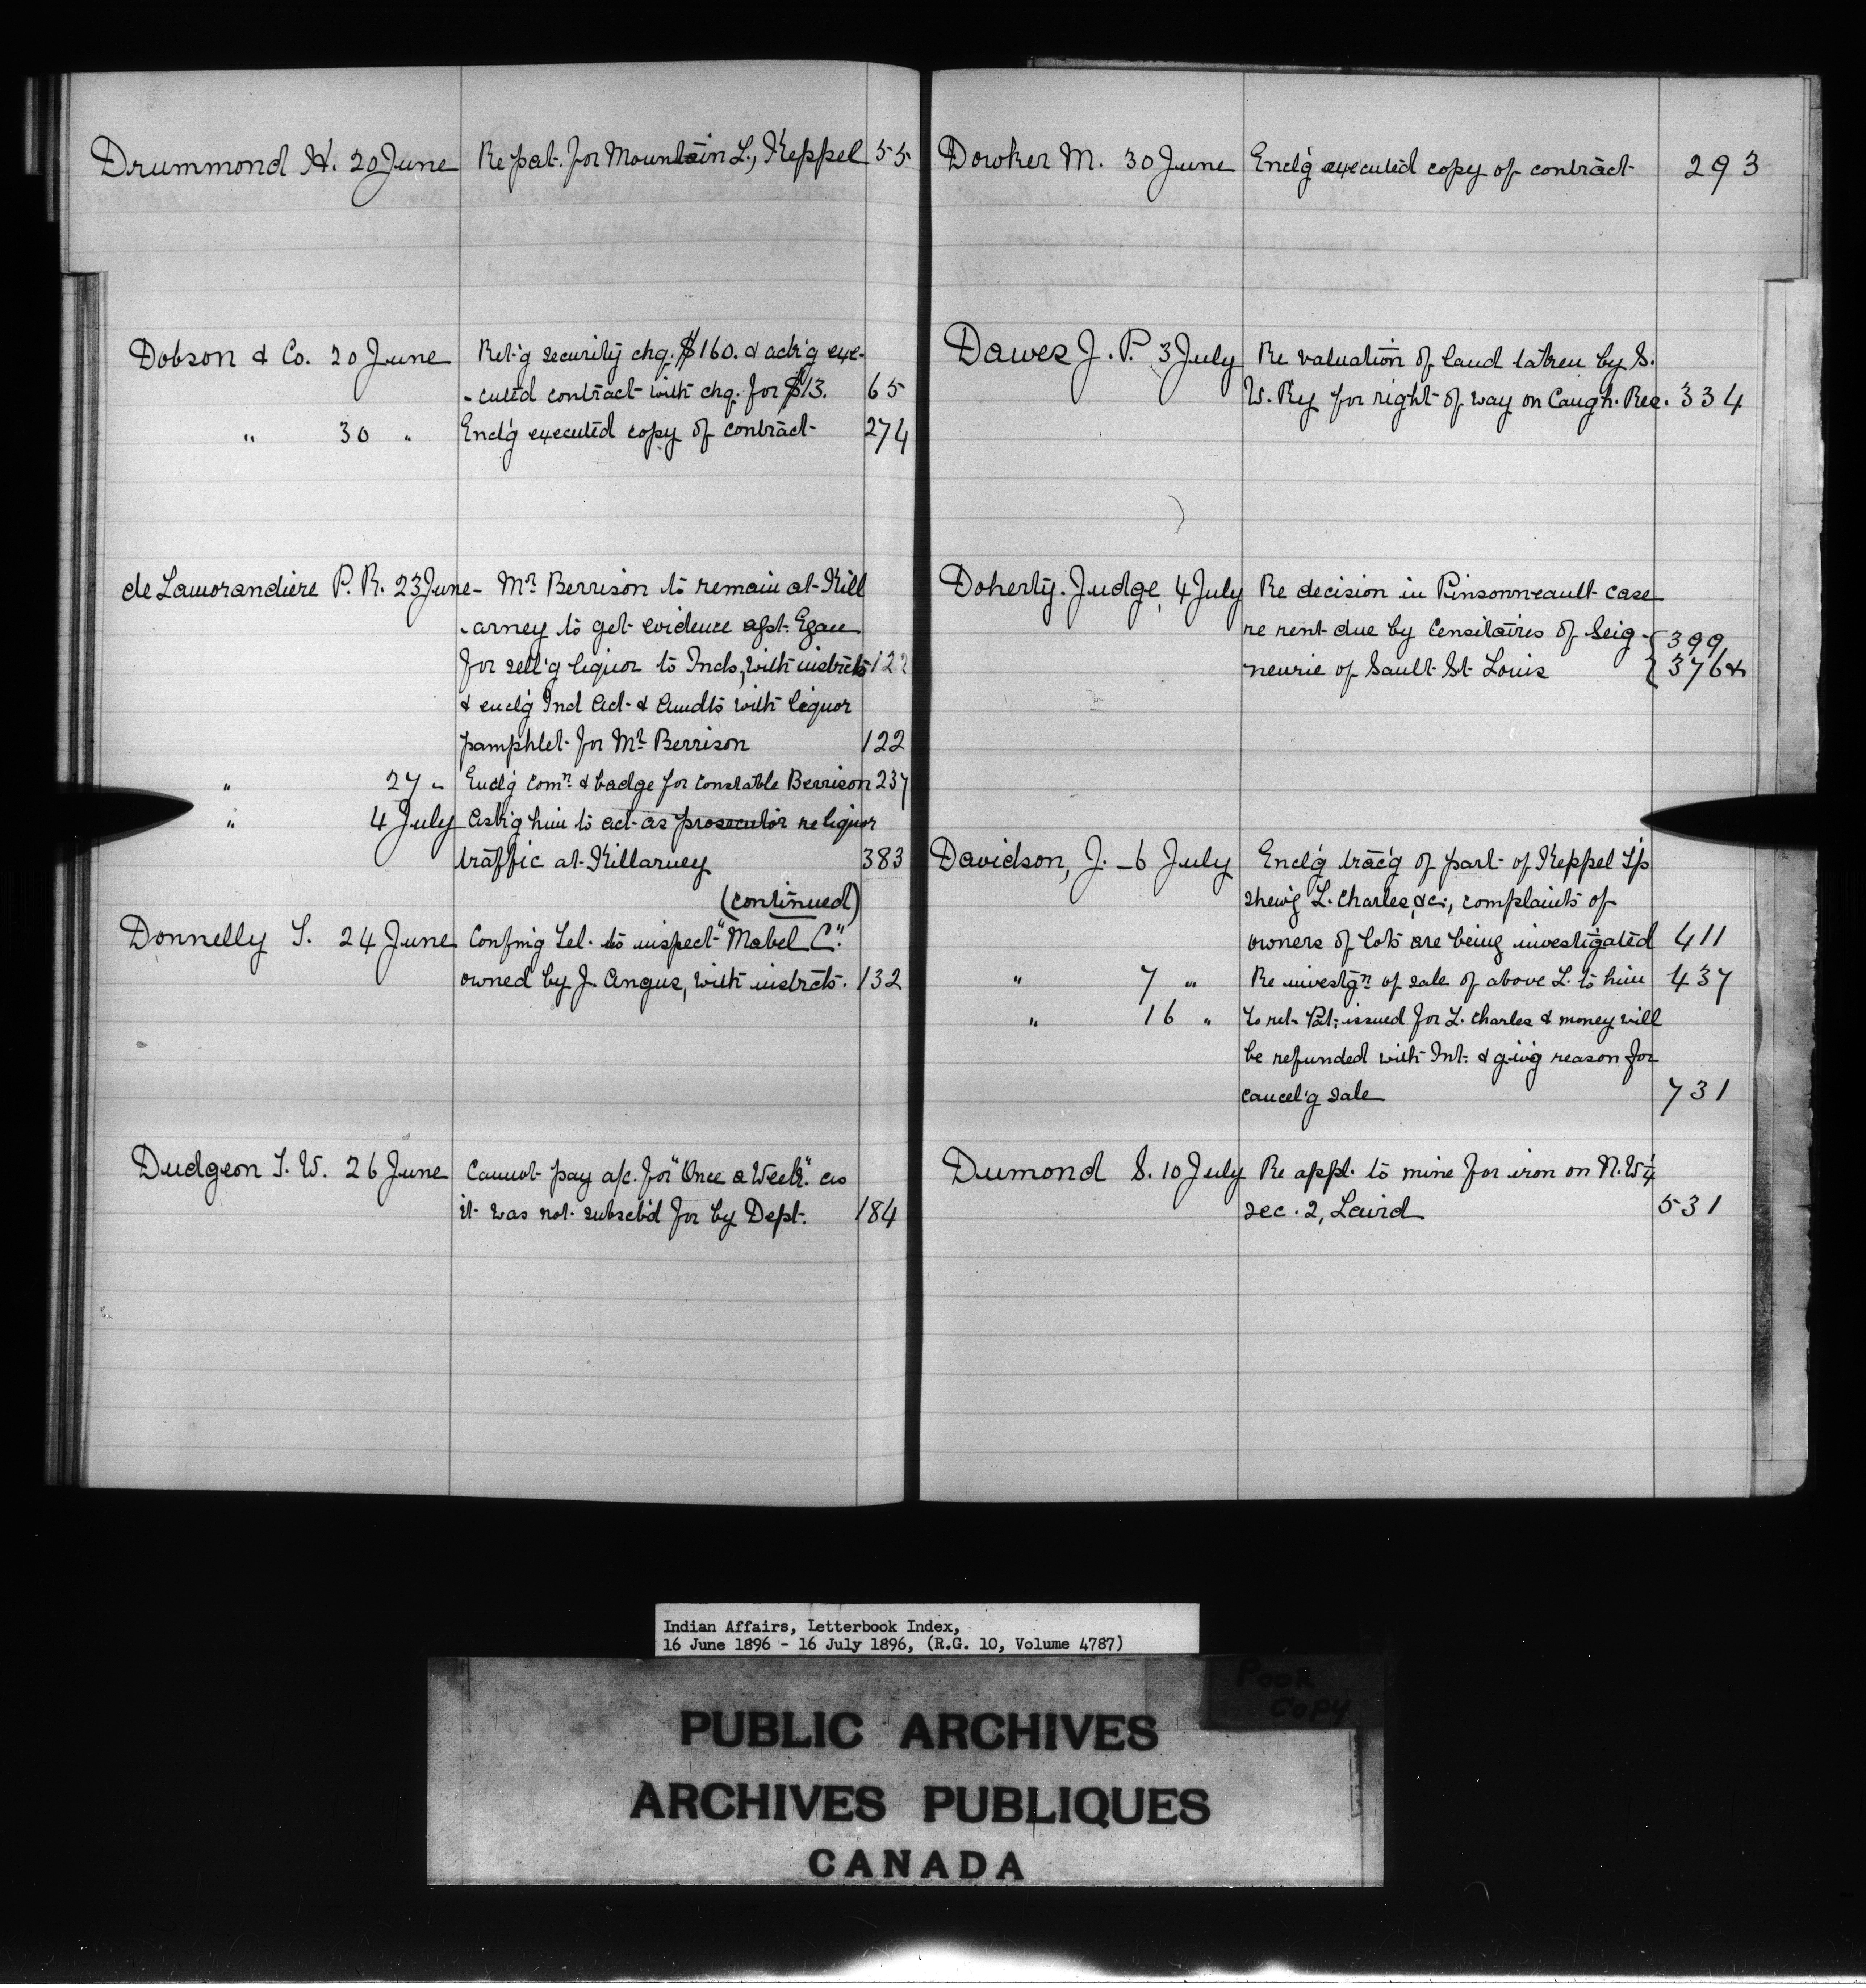 Drummond H. 20 June Re pat. for Mountain L., Keppel 55
Dobson & Co. 20 June Ret'g security chq. $160. & ack'g exe-
-cuted contract with chq. for $13. 65
" 30 " Encl'g executed copy of contract 274
de Lamorandiere P. R. 23 June - Mr Berrison to remain at Kill
-arney to get evidence agst. Egan
for sell'g liquor to Inds, with instrcts 122
& encl'g Ind Act & Amdts with liquor
pamphlet for Mr Berrison 122
" 27 " Encl'g Comn & badge for Constable Berrison 237
" 4 July Ask'g him to act as prosecutor re liquor
traffic at Killarney 383
(continued)
Donnelly T. 24 June Confm'g Tel. to inspect "Mabel C."
owned by J. Angus, with instrcts. 132
Dudgeon T. W. 26 June Cannot pay a/c. for "Once a Week" as
it was not subscb'd for by Dept. 184
Dowker M. 30 June Encl'g executed copy of contract 293
Dawes J. P. 3 July Re valuation of land taken by S.
W. Ry for right of way on Caugh. Res. 334
Doherty. Judge, 4 July Re decision in Pinsonneault case
re rent due by Censitaires of Seig- 399
neurie of Sault St Louis 376&
Davidson, J. - 6 July Encl'g trac'g of part of Keppel T'p
shew'g L. Charles, &c., complaints of
owners of lots are being investigated 411
" 7 " Re investgn of sale of above L. to him 437
" 16 " To ret. Pat. issued for L. Charles & money will
be refunded with Int. & giv'g reason for
cancel'g sale 731
Dumond S. 10 July Re appl. to mine for iron on N. W ¼
sec. 2, Laird 531
Indian Affairs, Letterbook Index,
16 June 1896 - 16 July 1896, (R.G. 10, Volume 4787)
Poor
Copy
PUBLIC ARCHIVES
ARCHIVES PUBLIQUES
CANADA